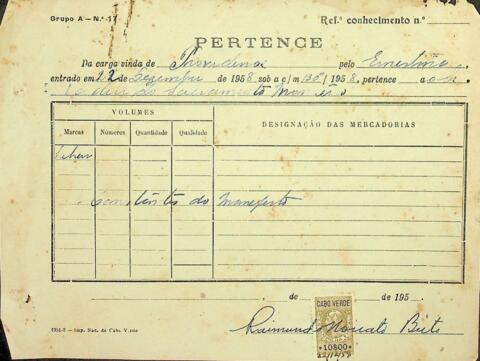 Grupo A — N.º 17
Ref.º conhecimento n.º
PERTENCE
Da carga vinda de Providence pelo Ernestina
entrado em 22 de Dezembro de 1958, sob a c/m 136/1958, pertence a
do Sacramento Monteiro
VOLUMES
DESIGNAÇÃO DAS MERCADORIAS
Marcas Números Quantidade Qualidade
Constantes do Manifesto
de de 195
CABO VERDE
10$00
22/12/58
Raimundo Nonato Brito
1914-8 — Imp. Nac. de Cabo Verde